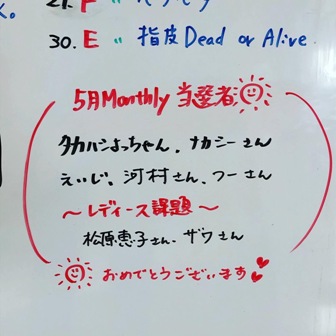 30. E 〃 指皮Dead or Alive
5月Monthly 当選者
タカハシよっちゃん、ナカシーさん
えいじ、河村さん、フーさん
〜レディース課題〜
松原恵子さん、ザワさん
おめでとうございます